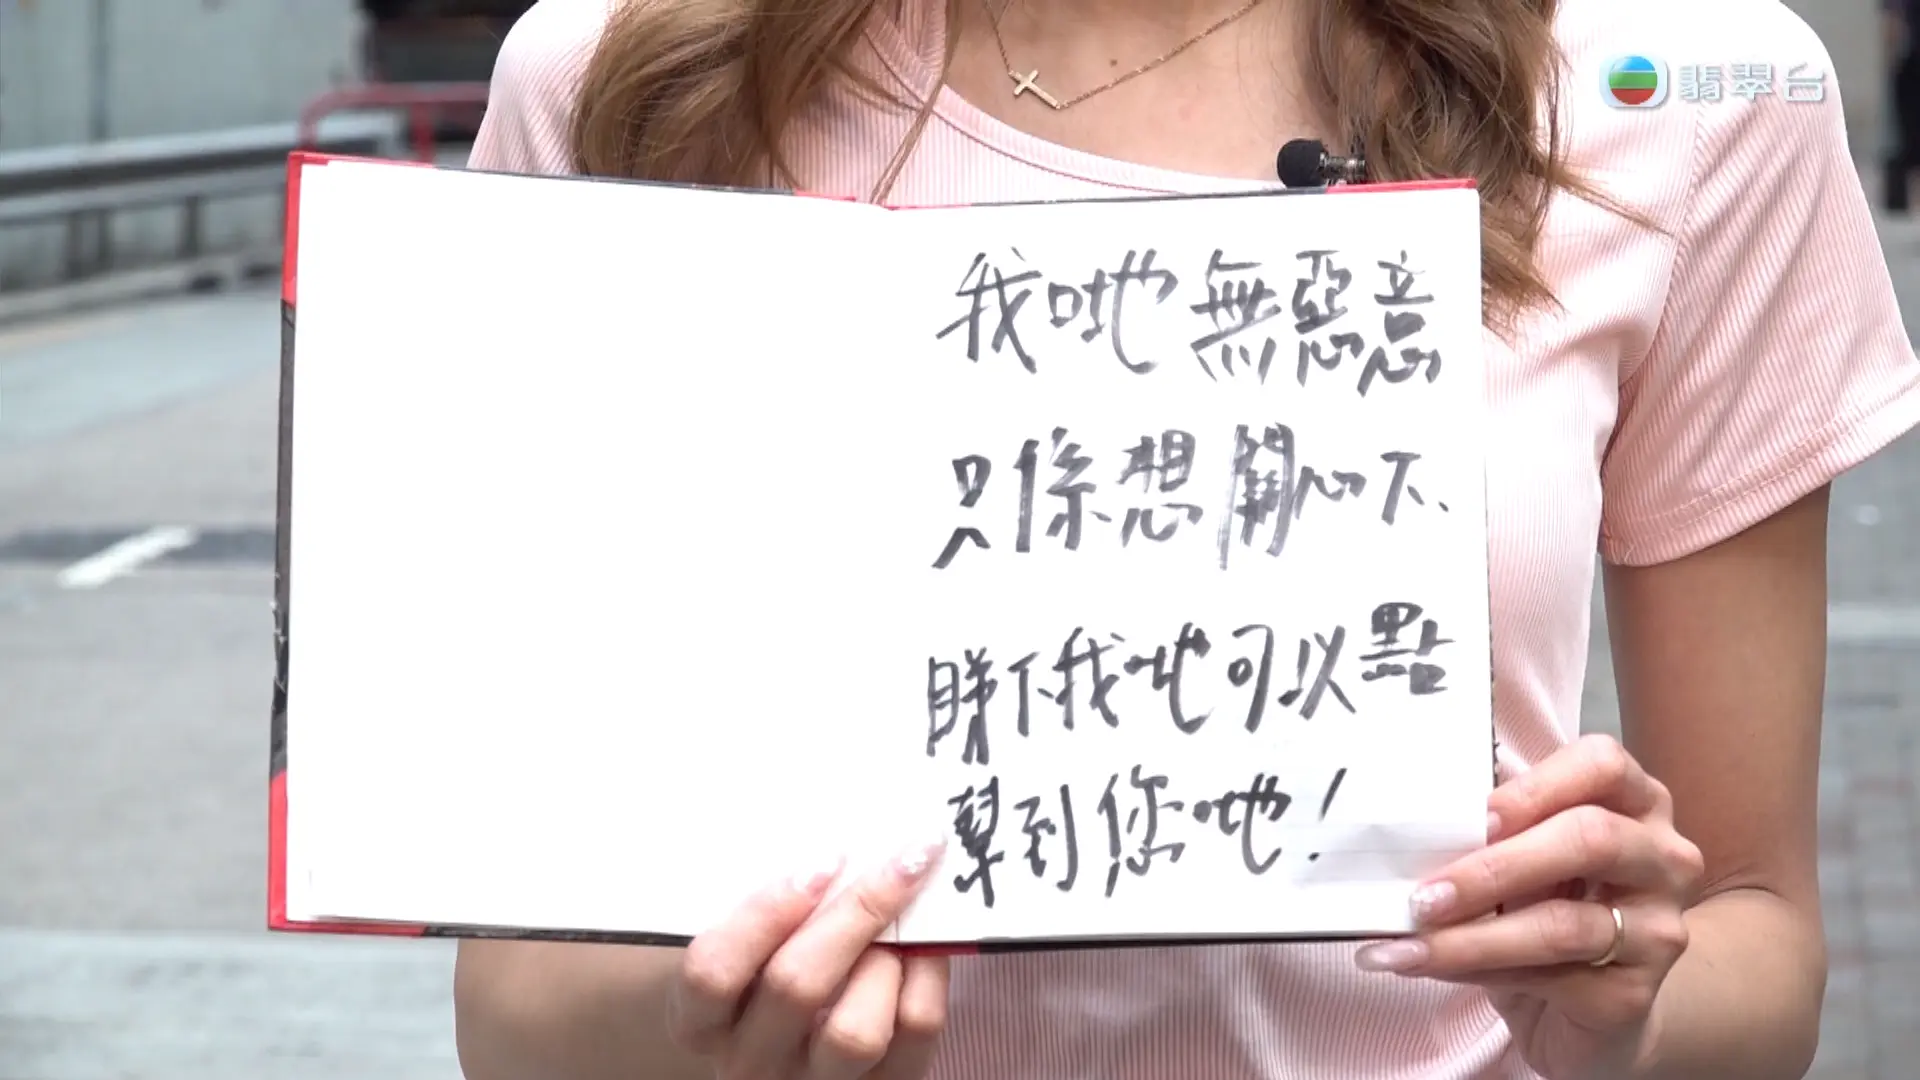 翡翠台
我哋無惡意
只係想關心下
睇下我哋可以點
幫到您哋！